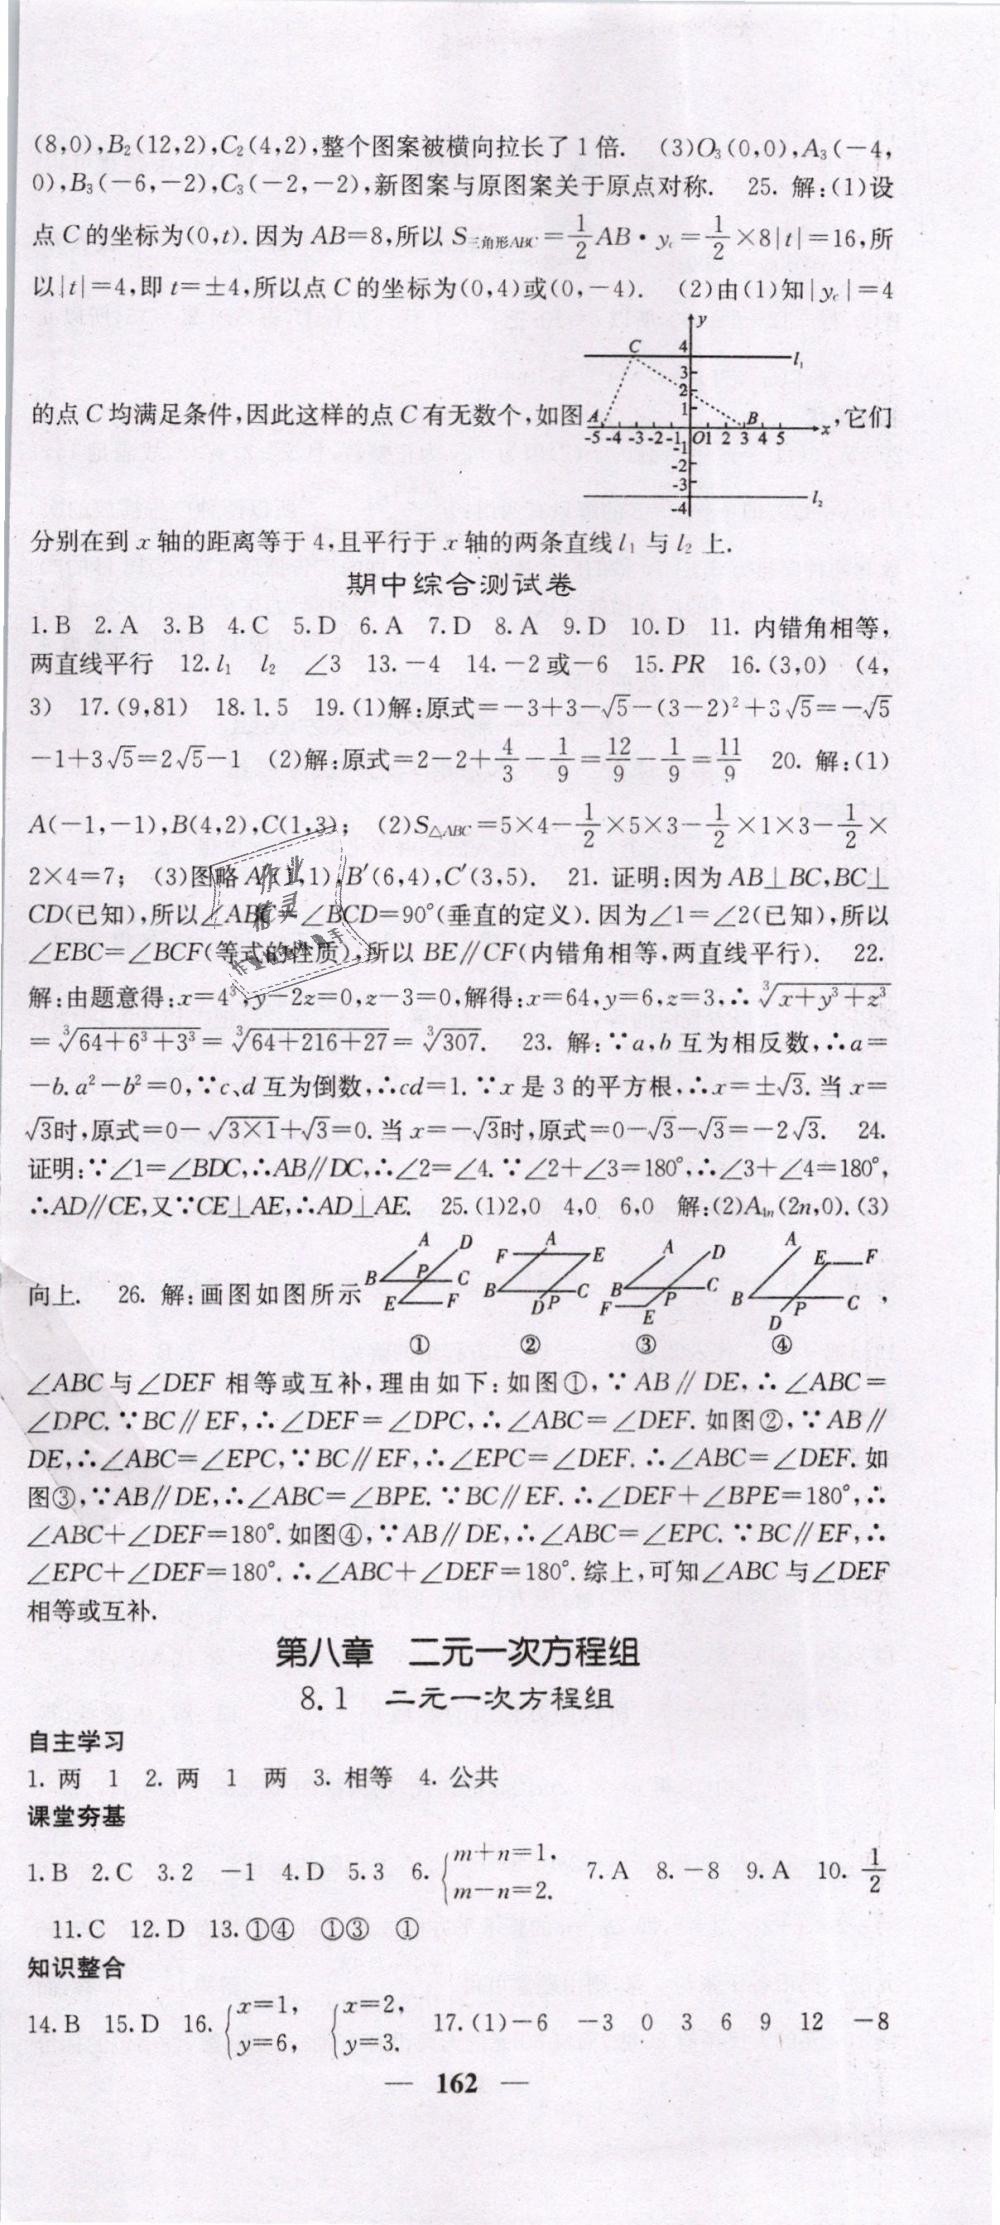 (8,0),B₂(12,2),C₂(4,2),整个图案被横向拉长了 1 倍. (3)O₃(0,0),A₃(-4,
0),B₃(-6,-2),C₃(-2,-2),新图案与原图案关于原点对称. 25. 解:(1)设
点 C 的坐标为(0,t).因为 AB=8,所以 S三角形ABC=1/2 AB·yc=1/2×8|t|=16,所
以|t|=4,即 t=±4,所以点 C 的坐标为(0,4)或(0,-4). (2)由(1)知|yc|=4
的点 C 均满足条件,因此这样的点 C 有无数个,如图 ,它们
y
C 4 l₁
3
2
1
A B x
-5 -4 -3 -2 -1 O 1 2 3 4 5
-1
-2
-3
-4 l₂
分别在到 x 轴的距离等于 4,且平行于 x 轴的两条直线 l₁ 与 l₂ 上.
期中综合测试卷
1.B 2.A 3.B 4.C 5.D 6.A 7.D 8.A 9.D 10.D 11. 内错角相等,
两直线平行 12.l₁ l₂ ∠3 13.-4 14.-2 或-6 15.PR 16.(3,0) (4,
3) 17.(9,81) 18.1.5 19.(1)解:原式=-3+3-√5-(3-2)²+3√5=-√5
-1+3√5=2√5-1 (2)解:原式=2-2+4/3-1/9=12/9-1/9=11/9 20. 解:(1)
A(-1,-1),B(4,2),C(1,3); (2)S△ABC=5×4-1/2×5×3-1/2×1×3-1/2×
2×4=7; (3)图略 A′(1,1),B′(6,4),C′(3,5). 21. 证明:因为 AB⊥BC,BC⊥
CD(已知),所以∠ABC=∠BCD=90°(垂直的定义).因为∠1=∠2(已知),所以
∠EBC=∠BCF(等式的性质),所以 BE∥CF(内错角相等,两直线平行). 22.
解:由题意得:x=4³,y-2z=0,z-3=0,解得:x=64,y=6,z=3,∴ ³√(x+y³+z³)
=³√(64+6³+3³)=³√(64+216+27)=³√307. 23. 解:∵a,b 互为相反数,∴a=
-b.a²-b²=0,∵c、d 互为倒数,∴cd=1.∵x 是 3 的平方根,∴x=±√3.当 x=
√3时,原式=0-√(3×1)+√3=0.当 x=-√3时,原式=0-√3-√3=-2√3. 24.
证明:∵∠1=∠BDC,∴AB∥DC,∴∠2=∠4.∵∠2+∠3=180°,∴∠3+∠4=180°,
∴AD∥CE,又∵CE⊥AE,∴AD⊥AE. 25.(1)2,0 4,0 6,0 解:(2)A₄ₙ(2n,0).(3)
向上. 26. 解:画图如图所示 ,
A D B P C E F
F A E B D P C
A D B C F P E
A E F B P C D
① ② ③ ④
∠ABC 与∠DEF 相等或互补,理由如下:如图①,∵AB∥DE,∴∠ABC=
∠DPC.∵BC∥EF,∴∠DEF=∠DPC,∴∠ABC=∠DEF.如图②,∵AB∥
DE,∴∠ABC=∠EPC,∵BC∥EF,∴∠EPC=∠DEF.∴∠ABC=∠DEF.如
图③,∵AB∥DE,∴∠ABC=∠BPE.∵BC∥EF.∴∠DEF+∠BPE=180°,∴
∠ABC+∠DEF=180°.如图④,∵AB∥DE,∴∠ABC=∠EPC.∵BC∥EF,∴
∠EPC+∠DEF=180°.∴∠ABC+∠DEF=180°.综上,可知∠ABC 与∠DEF
相等或互补.
第八章 二元一次方程组
8.1 二元一次方程组
自主学习
1. 两 1 2. 两 1 两 3. 相等 4. 公共
课堂夯基
1.B 2.C 3.2 -1 4.D 5.3 6.{m+n=1, m-n=2. 7.A 8.-8 9.A 10. 1/2
11.C 12.D 13.①④ ①③ ①
知识整合
14.B 15.D 16.{x=1, y=6, {x=2, y=3. 17.(1)-6 -3 0 3 6 9 12 -8
— 162 —